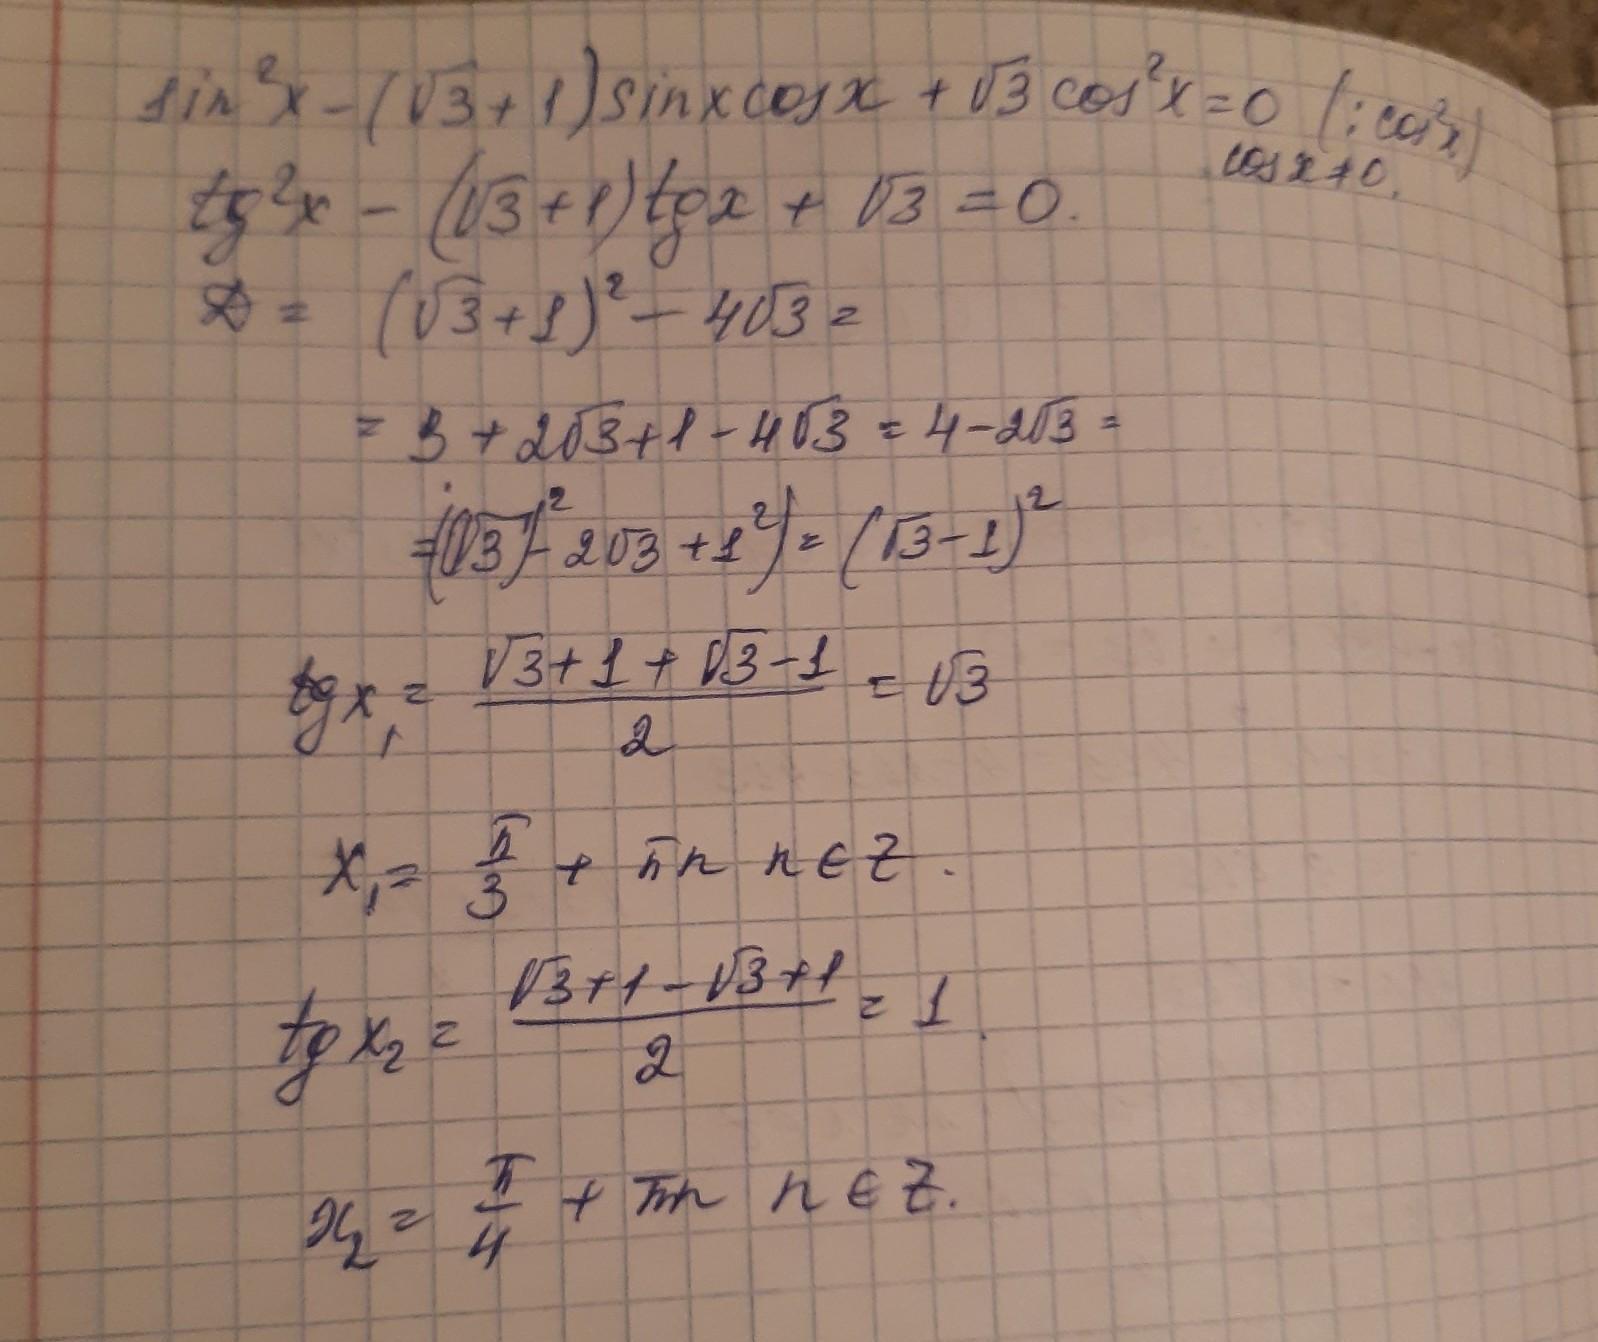 sin²x - (√3 + 1) sinx cosx + √3 cos²x = 0 (: cos²x)
cos x ≠ 0.
tg²x - (√3 + 1) tg x + √3 = 0.
D = (√3 + 1)² - 4√3 =
= 3 + 2√3 + 1 - 4√3 = 4 - 2√3 =
= ((√3)² - 2√3 + 1²) = (√3 - 1)²
tg x₁ = (√3 + 1 + √3 - 1)/2 = √3
x₁ = π/3 + πn n ∈ Z.
tg x₂ = (√3 + 1 - √3 + 1)/2 = 1.
x₂ = π/4 + πn n ∈ Z.